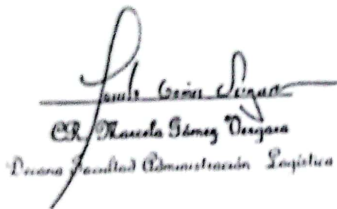 CR. Marcela Gómez Vergara
Decana Facultad Administración Logística